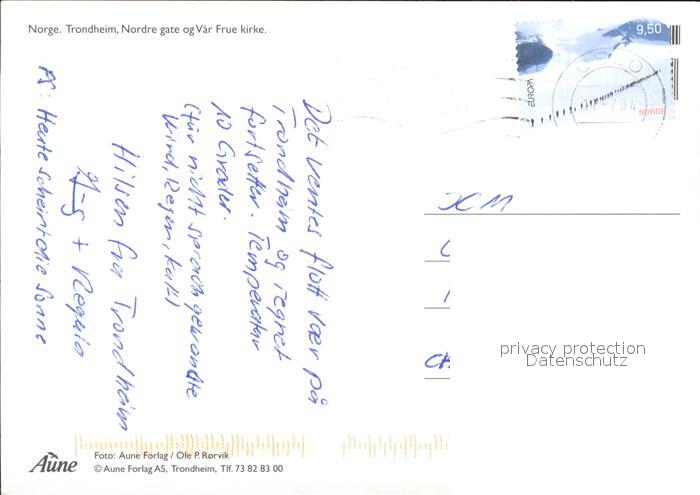 Norge. Trondheim, Nordre gate og Vår Frue kirke.
9,50
EUROPA
NORGE
Det ventes flott vær på
Trondheim og regnet
fortsetter. Temperatur
10 Grader.
(für nicht sprachgewandte
Wind, Regen, kalt)
Hilsen fra Trondheim
+ Regula
PS: Heute scheint die Sonne
privacy protection
Datenschutz
Aune
Foto: Aune Forlag / Ole P. Rørvik
© Aune Forlag AS, Trondheim, Tlf. 73 82 83 00